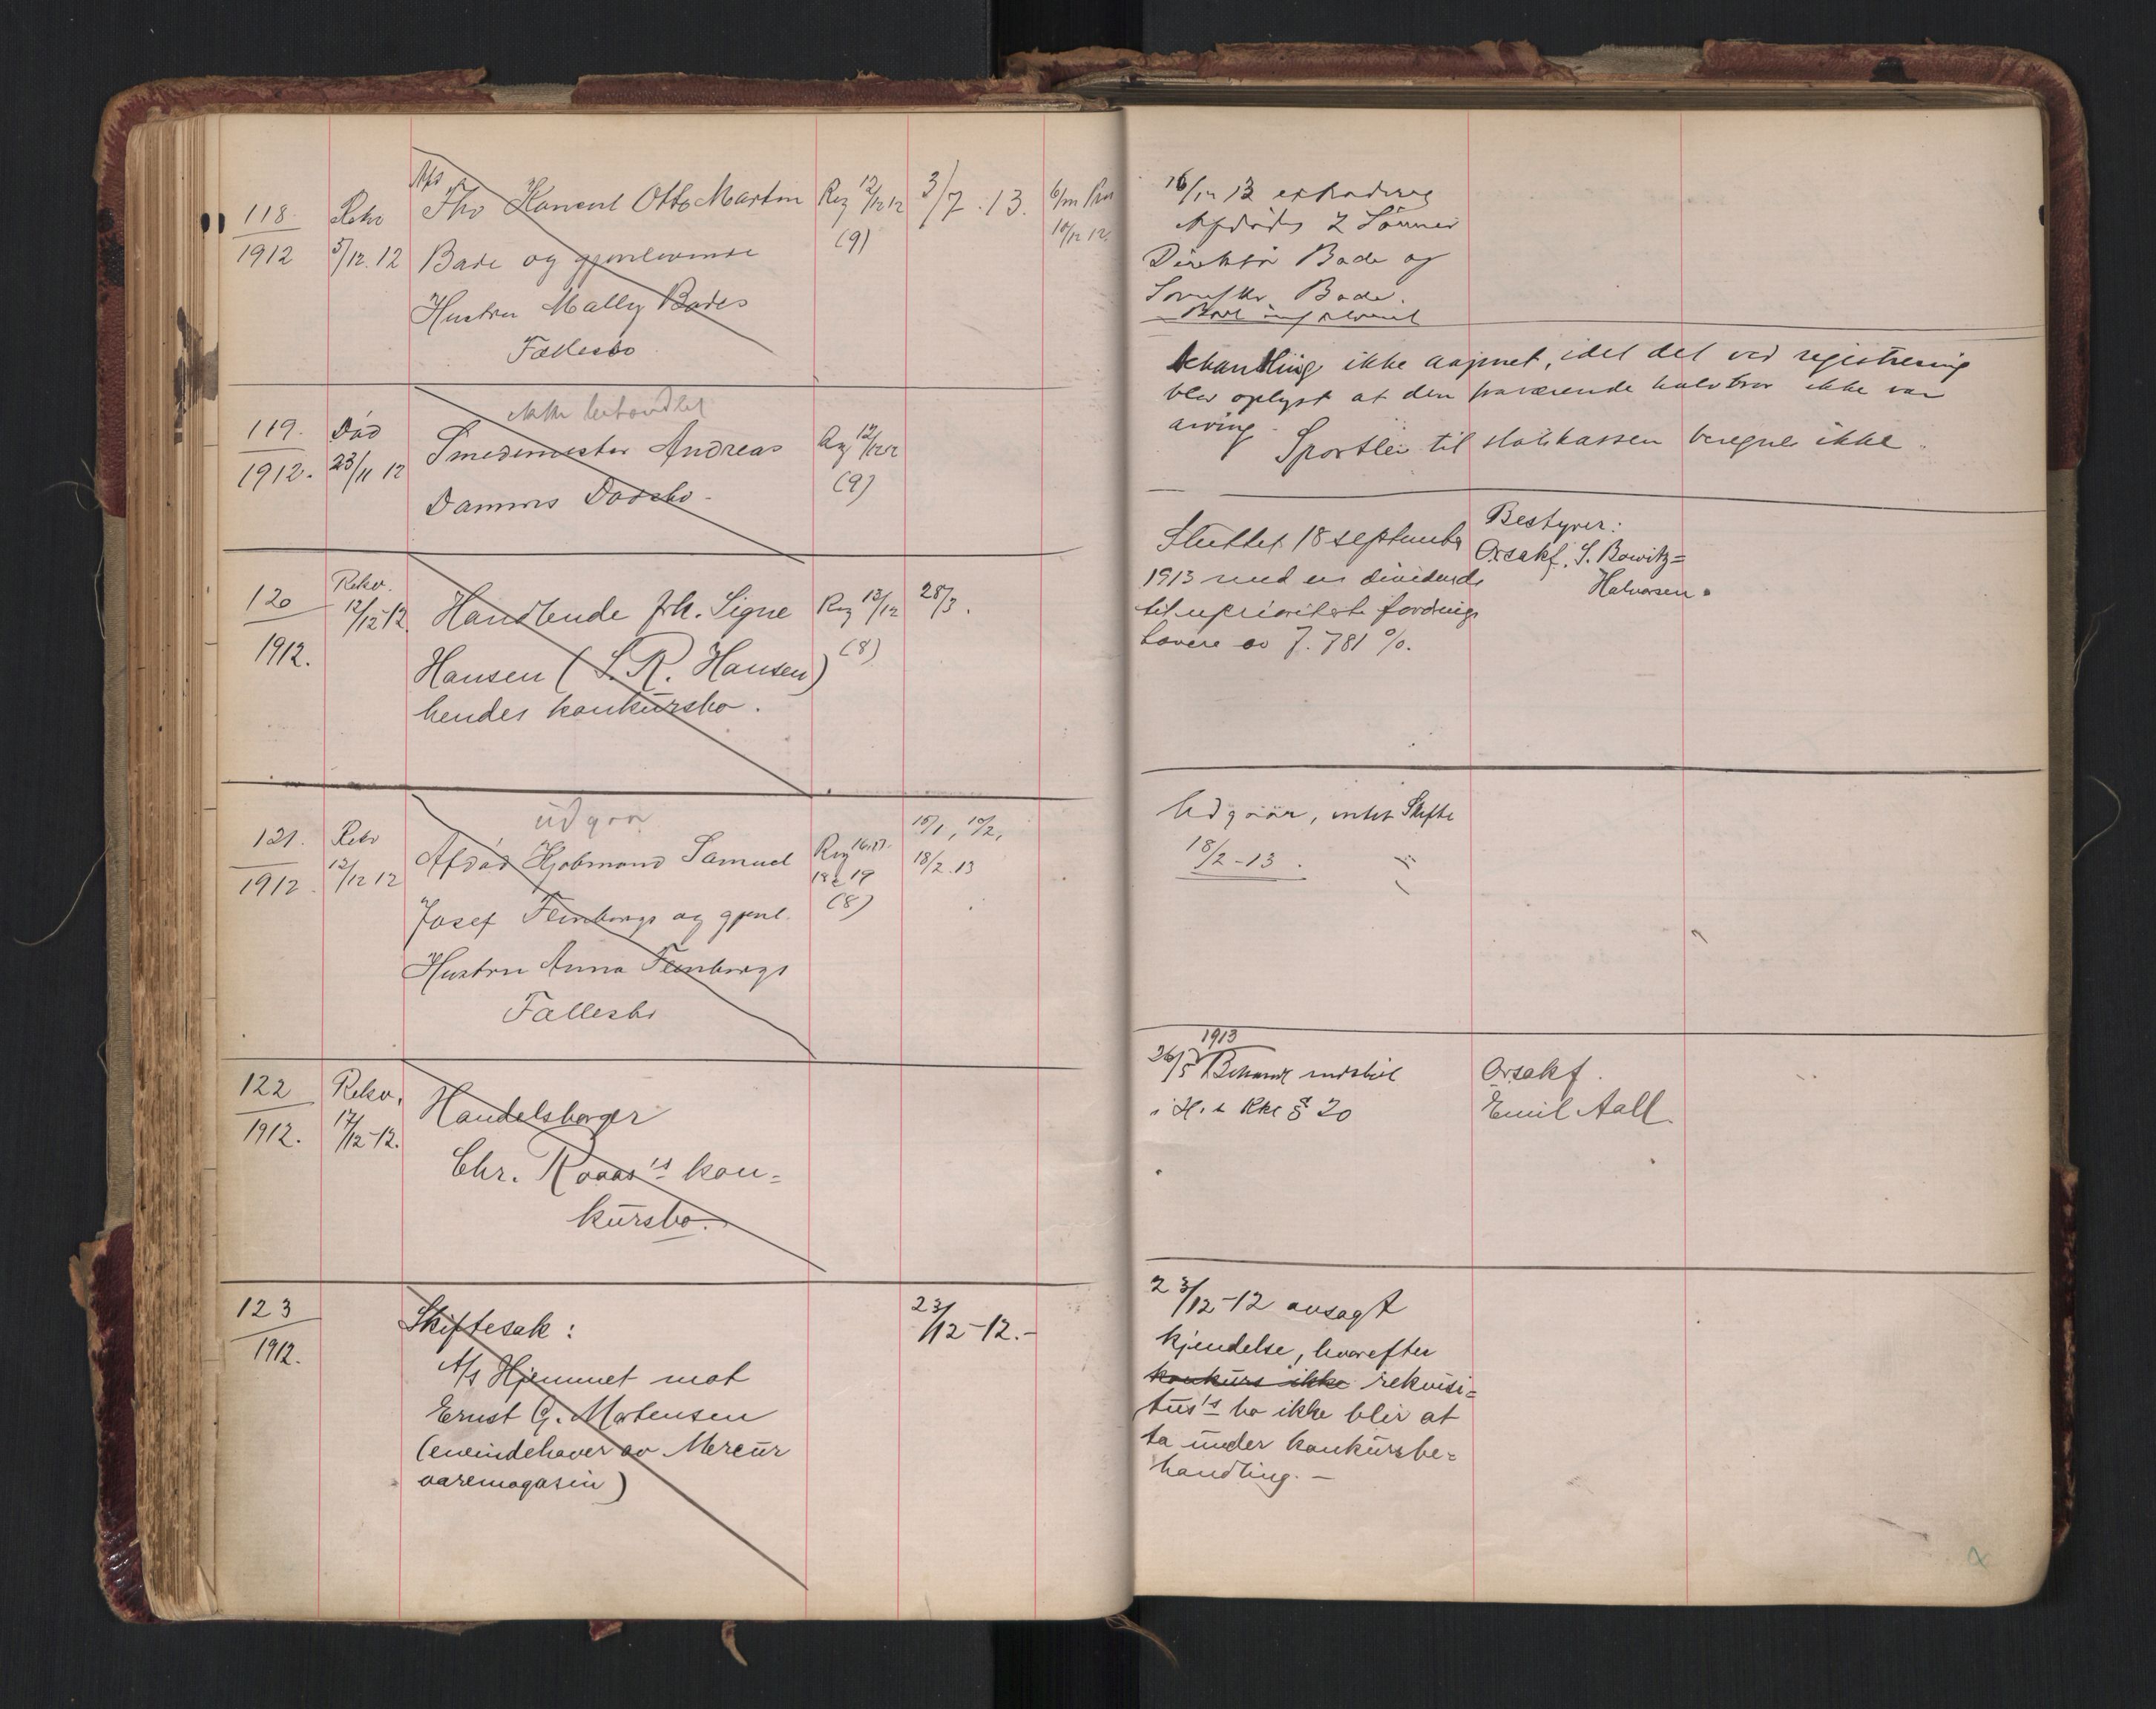 118 Rekv Afd Otto Marton Reg 12/12 12 3/7. 13. 6/12
1912 5/12. 12 Bade og gjenlevende (9) 10/12 12.
Hustru Mally Bades
Fællesbo
16/12 12
Afdødes 2 Sønner
Direktør Bade og
Bade.
119. Død ikke behandlet
1912. 23/11 12 Smedemester Andreas Reg 12/12 12
Damms Dødsbo. (9)
Behandling ikke aapnet, idet det ved registrering
blev oplyst at den fraværende halvbror ikke var
arving.
Sportler til statskassen beregnes ikke.
120 Rekv. 12/12-12 Handlende frk. Signe Reg 13/12 28/3.
1912. Hansen (S. R. Hansen) (8)
hendes konkursbo.
Sluttet 18 september
1913 med en dividende
til uprioriterte fordrings
havere av 7.781 %.
Bestyrer:
Orsakf. S. Bowitz=
Halvorsen.
121. Rekv udgaar 15/1, 10/2,
1912. 12/12 12 Afdød Samuel Reg 16.17. 18/2. 13
18 & 19
Josef Feinbergs og gjenl. (8)
Hustru Anna Feinbergs
Fællesbo
Udgaar, intet Skifte
18/2-13.
122 Rekv. Handelsborger
1912. 17/12-12. Chr. Raaas's kon=
kursbo.
1913
26/5 Behandl indstil
i H. t. Kkl § 20
Orsakf.
Emil Aall.
123 Skiftesak: 23/12-12.-
1912. A/s Hjemmet mot
Ernst G. Mortensen
(eneindehaver av Mercur
varemagasin)
23/12-12 avsagt
kjendelse, hvorefter
konkurs ikke rekvisi=
tus's bo ikke blir at
ta under konkursbe=
handling. -